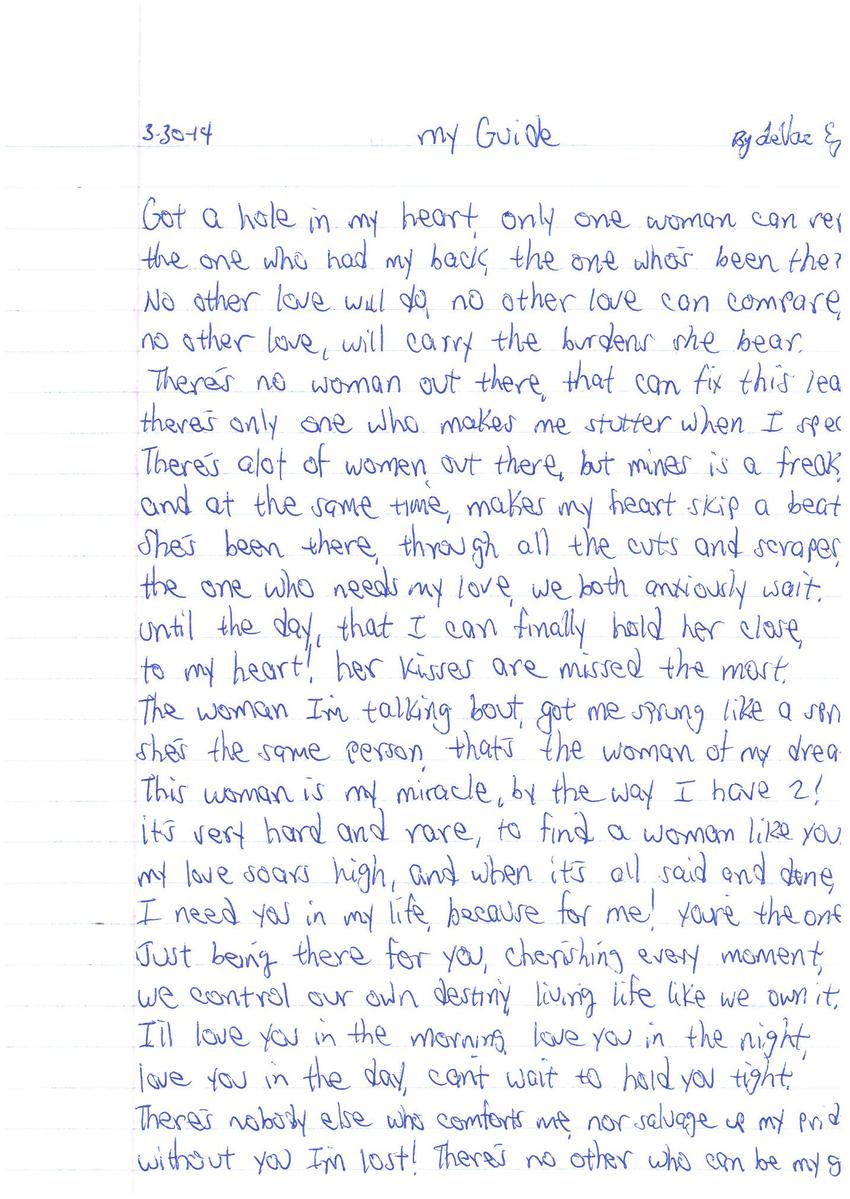 3-30-14 My Guide By
Got a hole in my heart, only one woman can
the one who had my back, the one who's been
No other love will do, no other love can compare,
no other love, will carry the burdens she bear.
There's no woman out there, that can fix this
there's only one who makes me stutter when I
There's alot of women out there, but mines is a freak,
and at the same time, makes my heart skip a beat
She's been there, through all the cuts and scrapes,
the one who needs my love, we both anxiously wait.
until the day, that I can finally hold her close,
to my heart! her kisses are missed the most.
The woman I'm talking bout, got me sprung like a
she's the same person, that's the woman of my
This woman is my miracle, by the way I have 2!
it's very hard and rare, to find a woman like you.
my love soars high, and when it's all said and done,
I need you in my life, because for me! you're the one
Just being there for you, cherishing every moment,
we control our own destiny, living life like we own it.
I'll love you in the morning, love you in the night,
love you in the day, can't wait to hold you tight.
There's nobody else who comforts me, nor salvage up my
without you I'm lost! There's no other who can be my